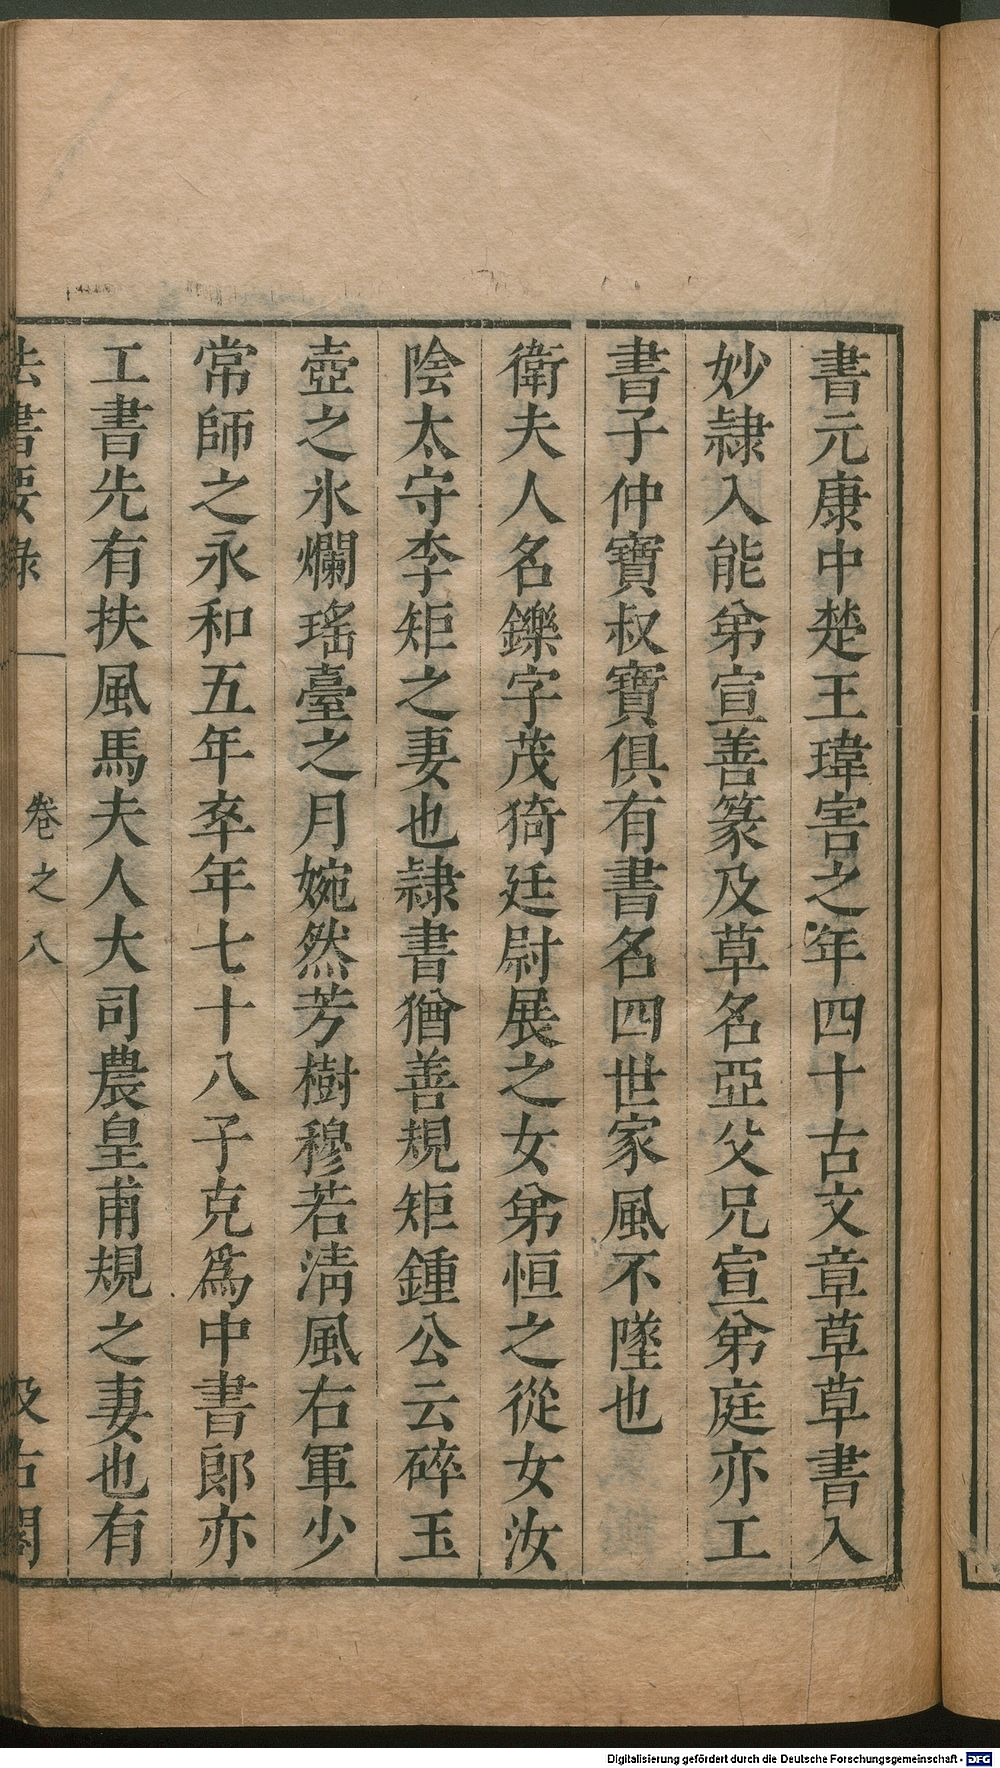 書元康中楚王瑋害之年四十古文章草草書入
妙隷入能弟宣善篆及草名亞父兄宣弟庭亦工
書子仲寶叔寶俱有書名四世家風不墜也
衛夫人名鑠字茂猗廷尉展之女弟恒之從女汝
陰太守李矩之妻也隷書猶善規矩鍾公云碎玉
壺之氷爛瑤臺之月婉然芳樹穆若清風右軍少
常師之永和五年卒年七十八子克爲中書郎亦
工書先有扶風馬夫人大司農皇甫規之妻也有
法書要錄 卷之八 汲古閣
Digitalisierung gefördert durch die Deutsche Forschungsgemeinschaft - DFG